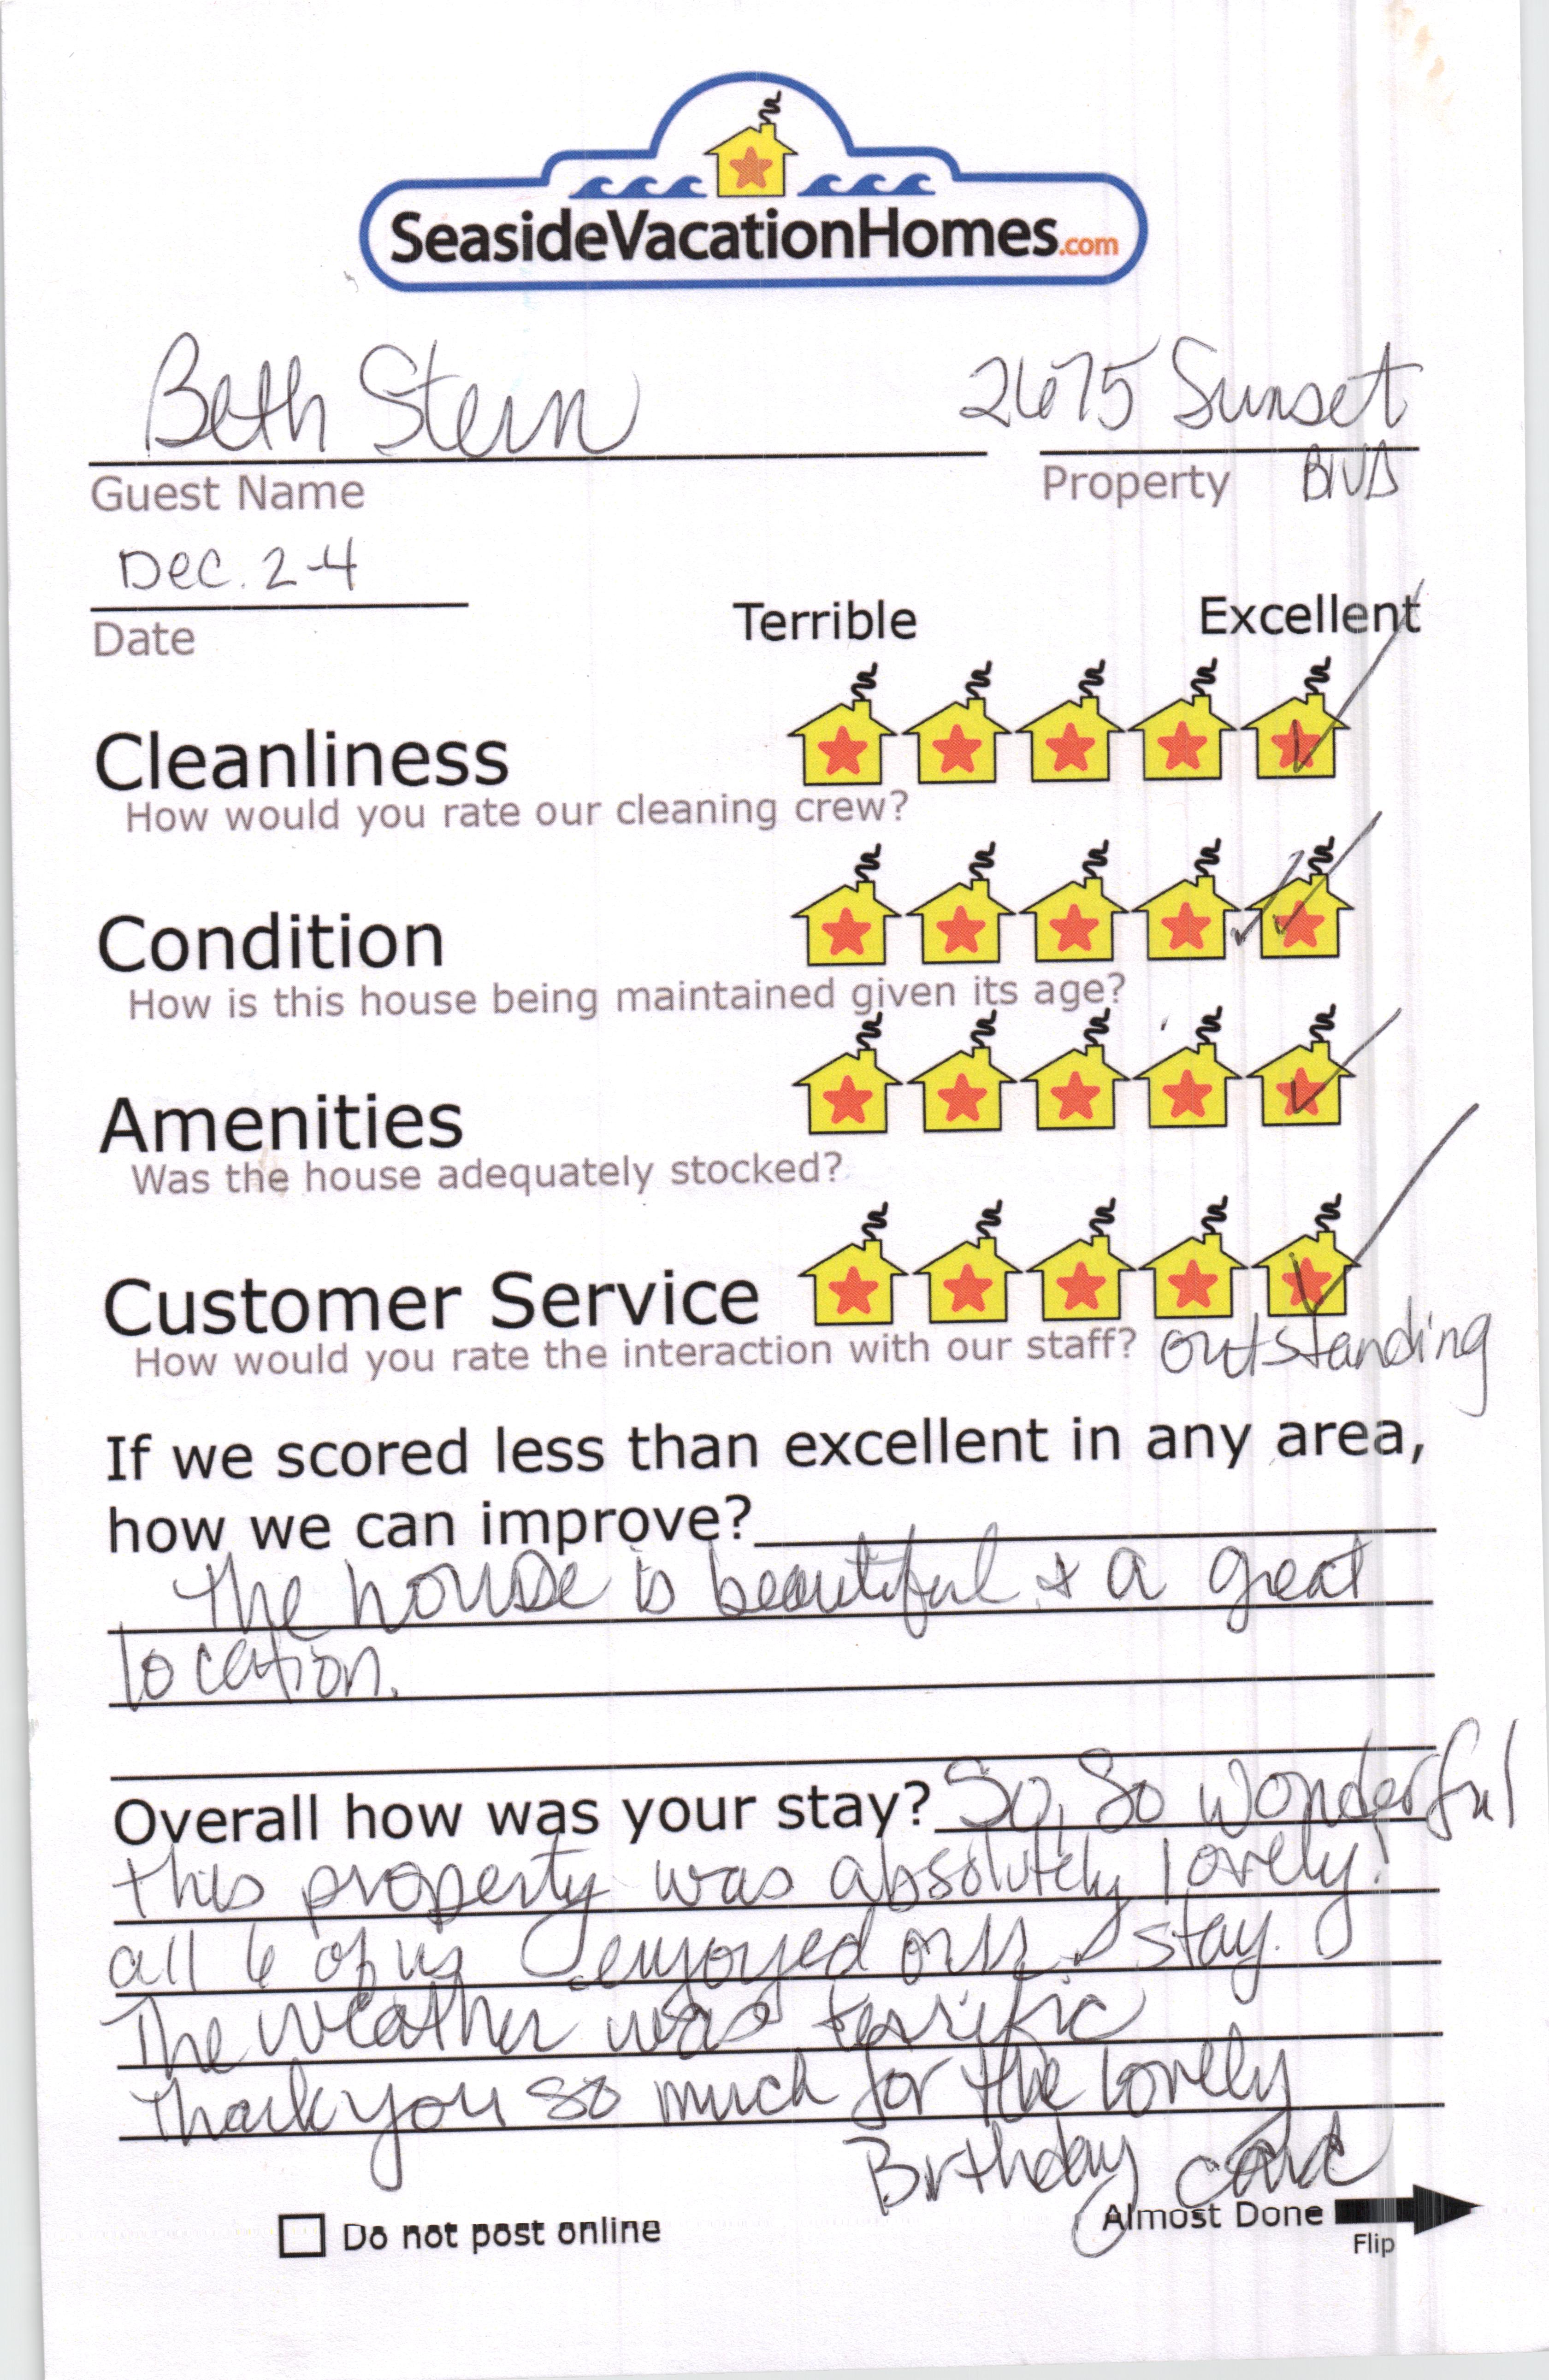 SeasideVacationHomes.com
Beth Stern
2675 Sunset
Guest Name
Property Blvd
Dec. 2-4
Date
Terrible Excellent
Cleanliness
How would you rate our cleaning crew?
Condition
How is this house being maintained given its age?
Amenities
Was the house adequately stocked?
Customer Service
How would you rate the interaction with our staff? outstanding
If we scored less than excellent in any area,
how we can improve?
The house is beautiful & a great
location.
Overall how was your stay? So, So wonderful
this property was absolutely lovely!
all 6 of us enjoyed our stay.
The weather was terrific
Thank you so much for the lovely
Birthday card
Do not post online
Almost Done
Flip